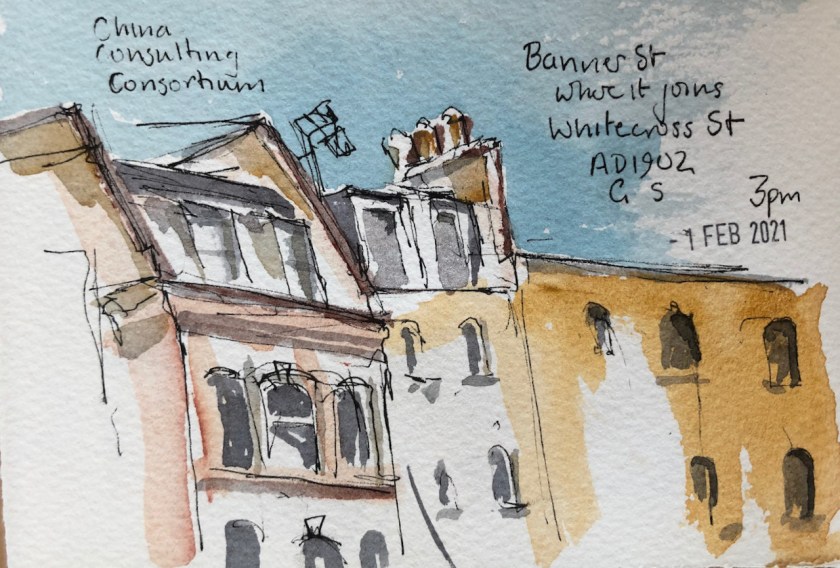 China
Consulting
Consortium
Banner St
where it joins
Whitecross St
AD1902
G S
3pm
-1 FEB 2021